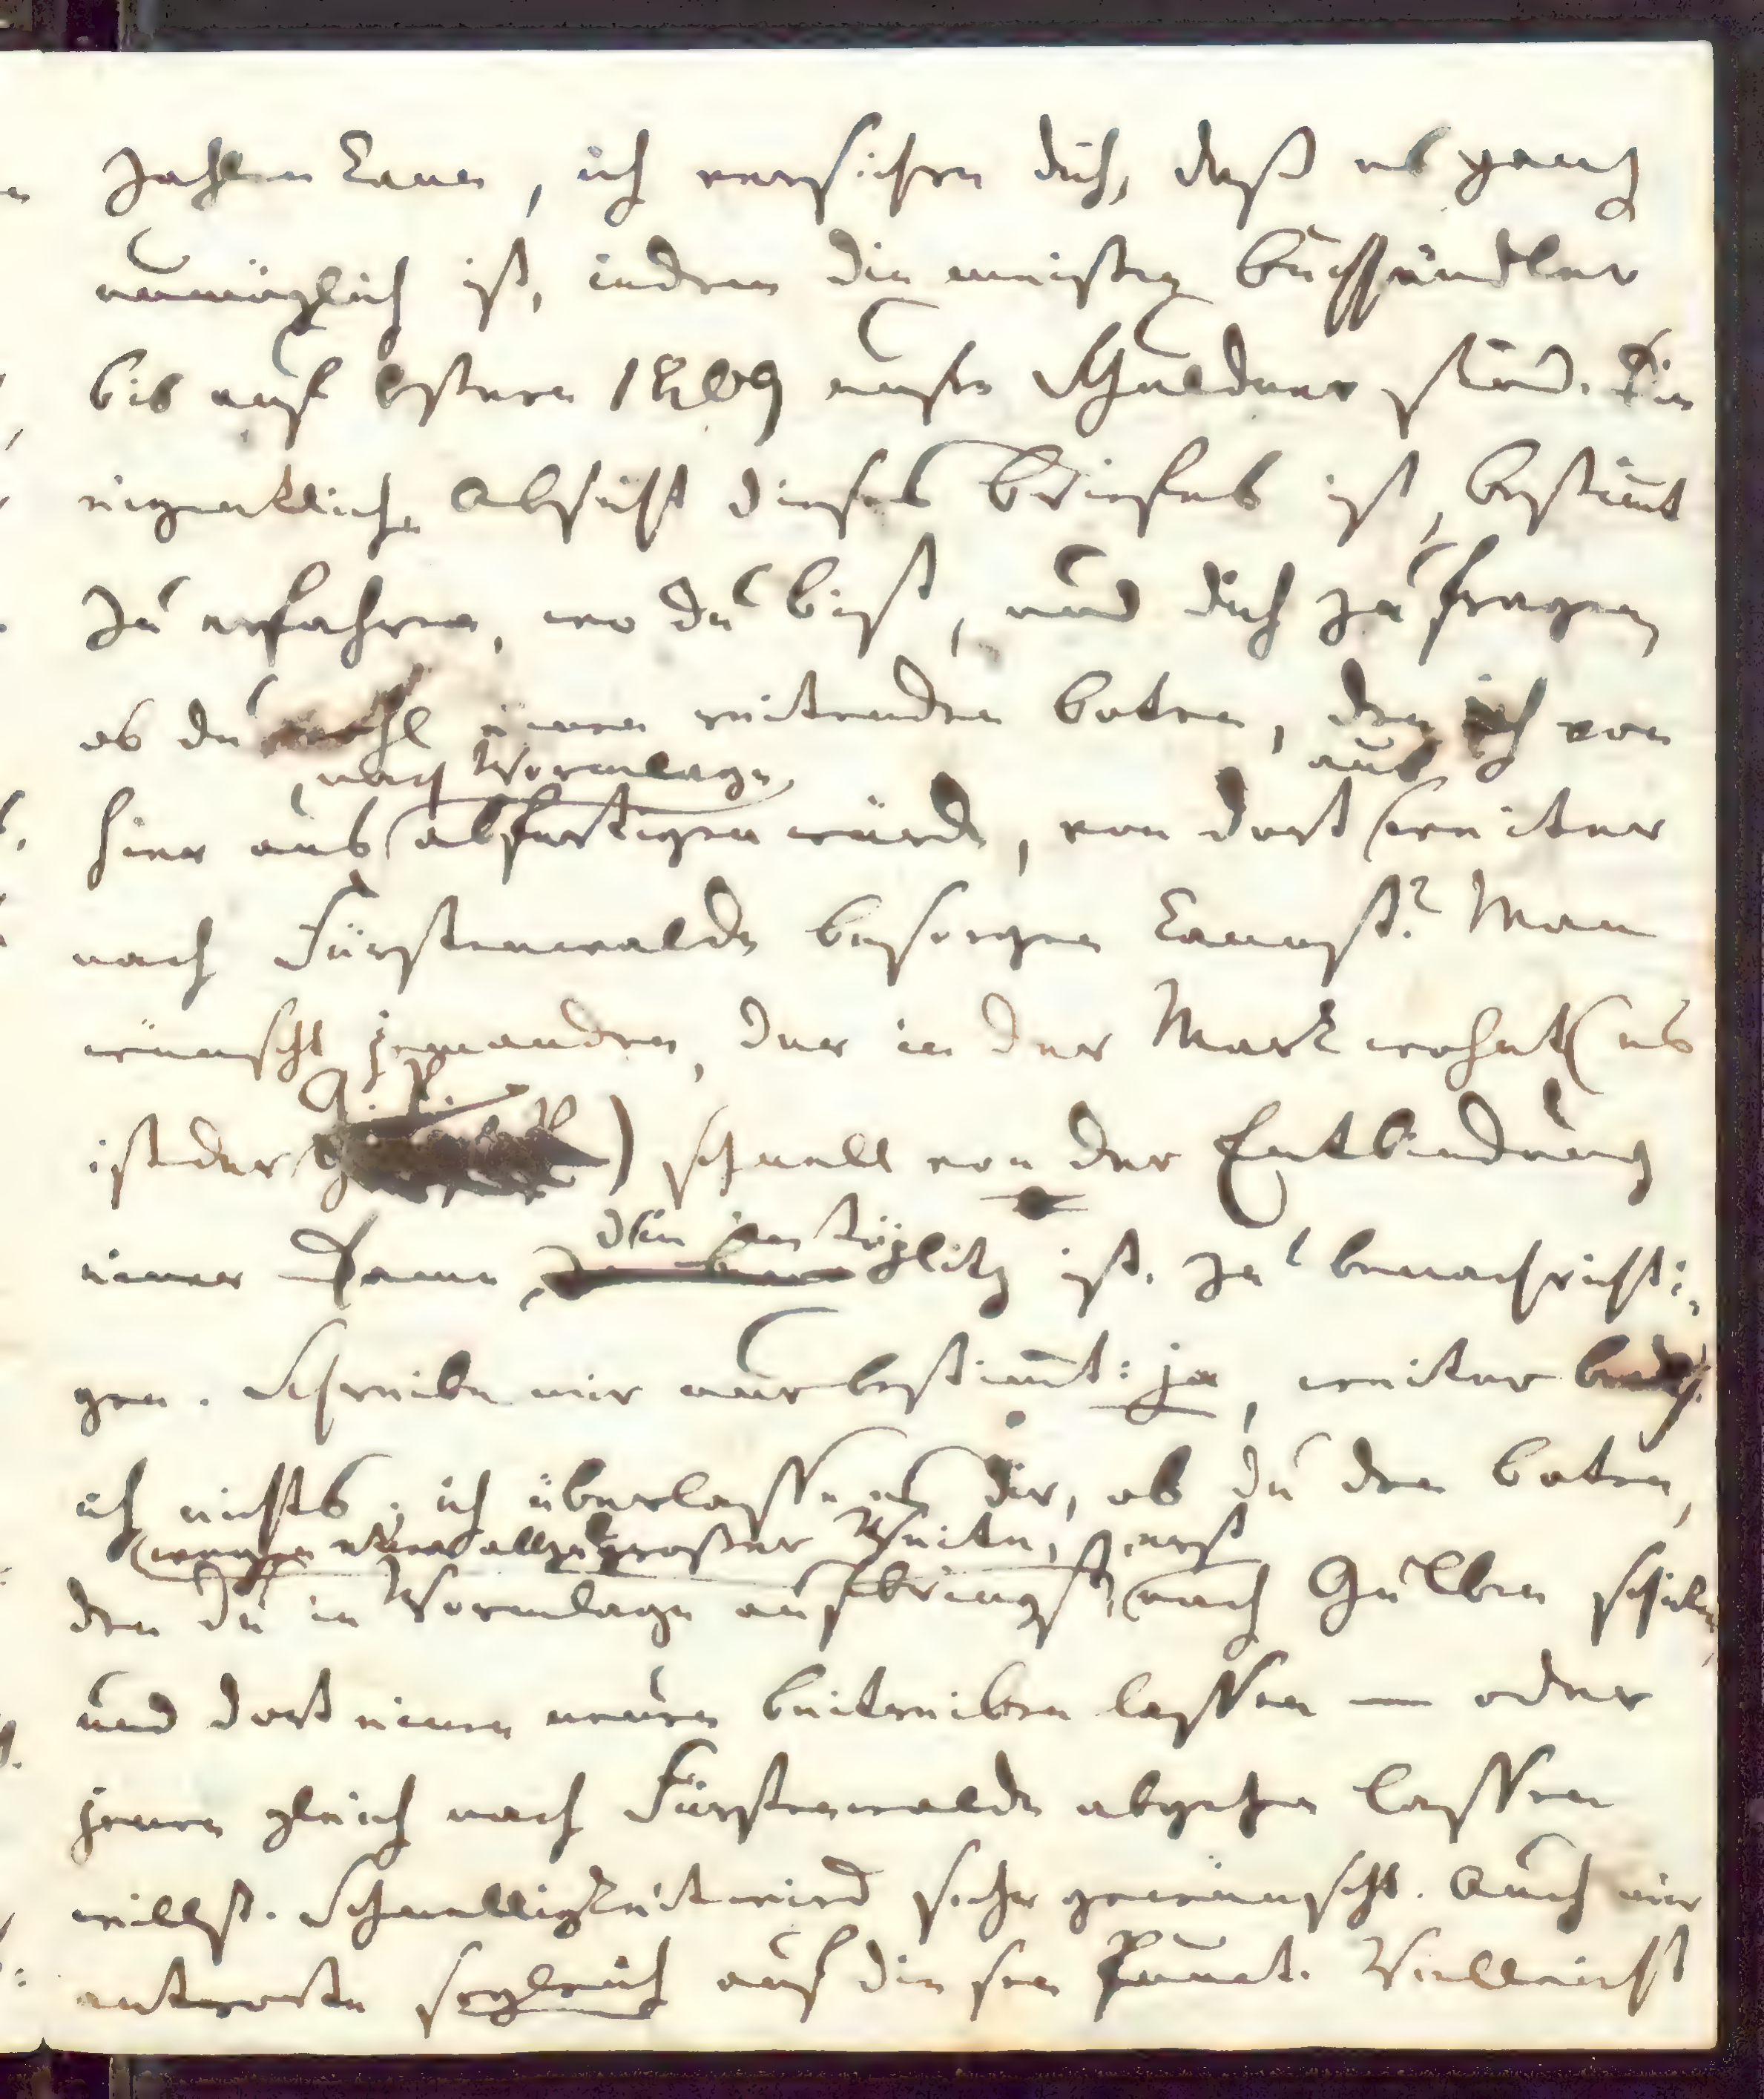 zahlen kann, ich versichre dich, daß es ganz
unmöglich ist, indem die meisten Buchhändler
bis auf Ostern 1809 unsre Schuldner sind. Die
eigentliche Absicht dieses Briefes ist, bestim̄t
zu erfahren, wo du bist, und dich zu fragen
ob du wohl einen reitenden Boten, den ich von
nach Wormlage
aus
hier aus abfertigen würde, von dort weiter
nach Fürstenwalde besorgen kannst? Man
wünscht jemanden, der in der Mark wohnt (es
G. P.
ist der) schnell von der Entbindung
die in Töplitz
einer Dame, ist. zu benachrichti:
gen. Schreibe mir nur bestim̄t: ja, weiter
ich nichts; ich überlasse es dir, ob du den Boten,
(wegen etwa allzugroßer Weite,) erst
den du in Wormlage aufbringst, nach Gulben schicken
und dort einen neuen beitreiben lassen — oder
jenen gleich nach Fürstenwalde abgehen lassen
willst. Schnelligkeit wird sehr gewünscht. Auch mir
antworte sogleich auf diesen Punct. Vielleicht